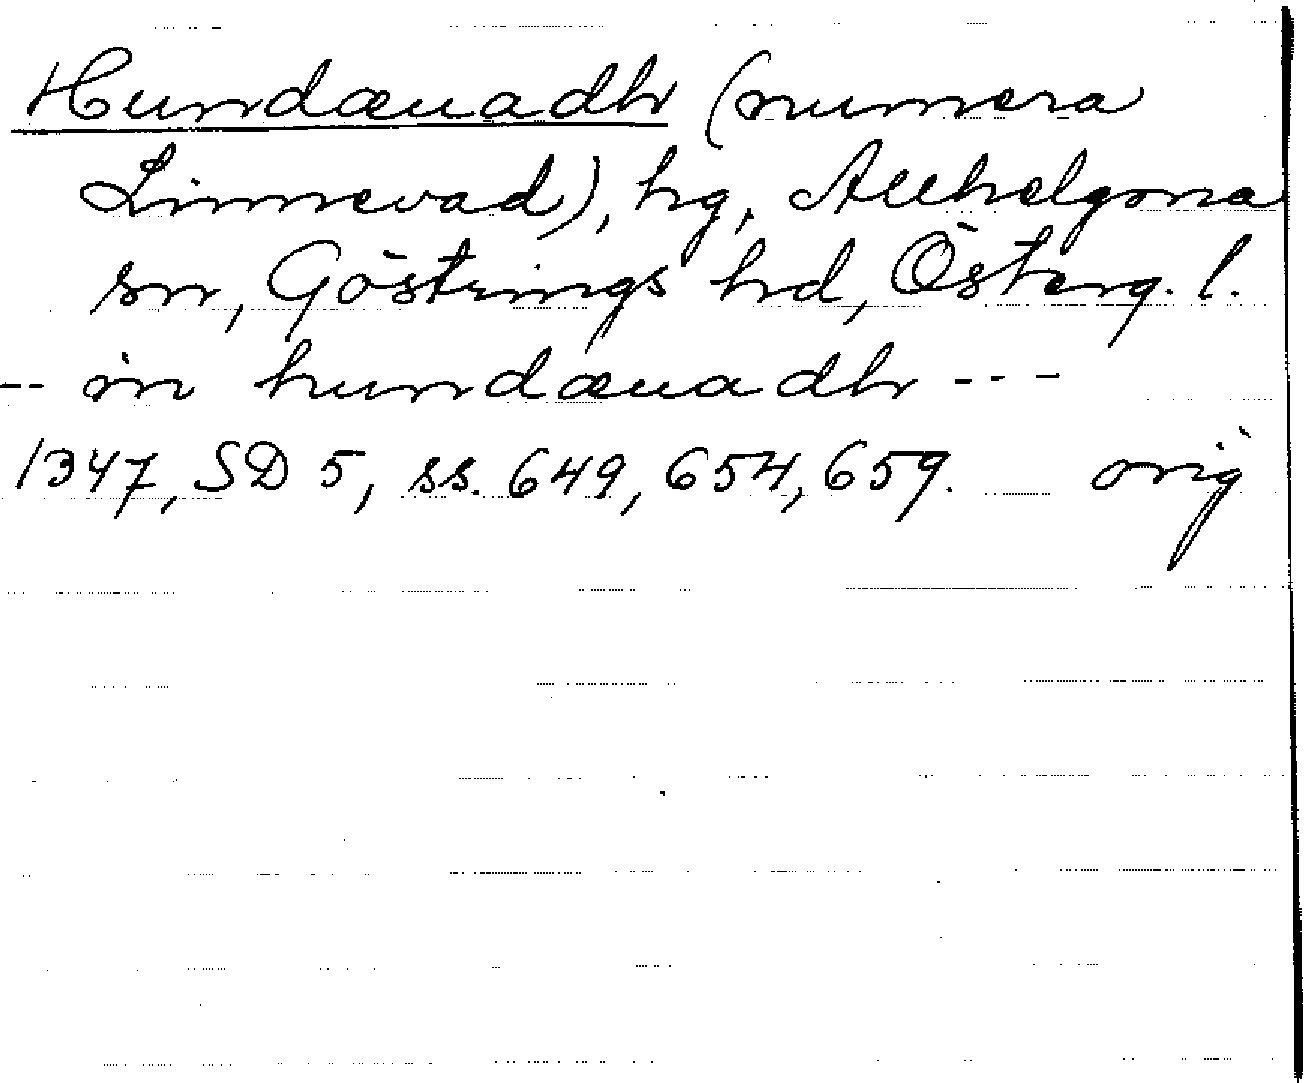 Hundæuadh (numera
Linnevad), hg, Allhelgona
sn, Göstrings hd, Österg. l.
-- in hundæuadh ---
1347, SD 5, ss. 649, 654, 659. orig